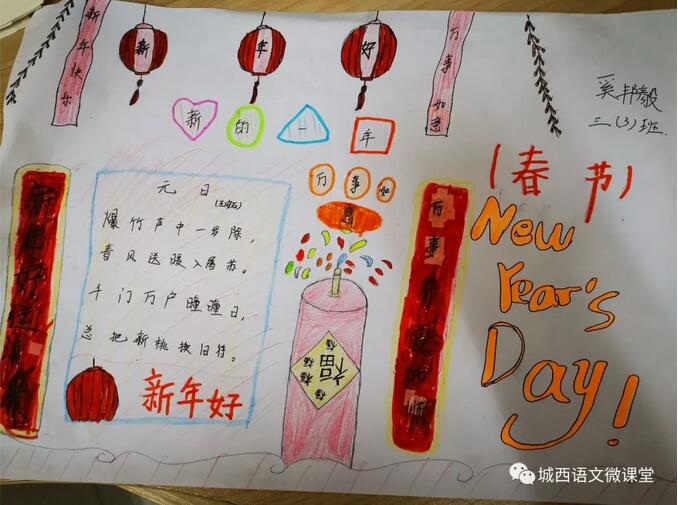 新年快乐
新年好
万事如意
奚邦毅
三(3)班
新的一年
万事如意
(春节)
New
Year's
Day!
元日
(王安石)
爆竹声中一岁除，
春风送暖入屠苏。
千门万户曈曈日，
总把新桃换旧符。
新年好
福
福福福
新年好运
万事
城西语文微课堂